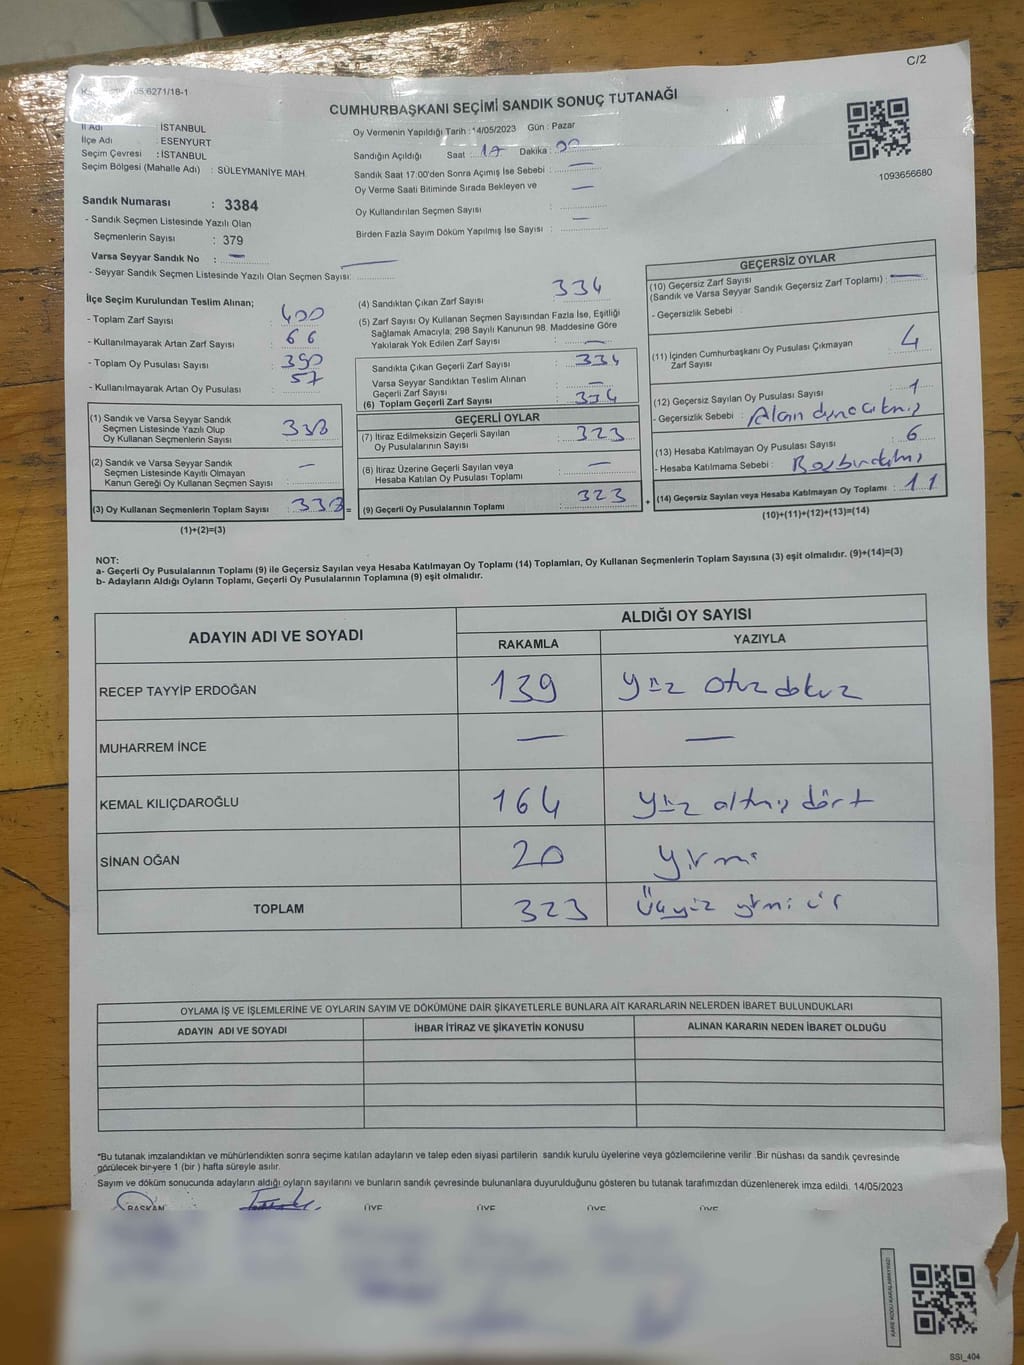 C/2
CUMHURBAŞKANI SEÇİMİ SANDIK SONUÇ TUTANAĞI
İl Adı : İSTANBUL
İlçe Adı : ESENYURT
Seçim Çevresi : İSTANBUL
Seçim Bölgesi (Mahalle Adı) : SÜLEYMANİYE MAH.
Oy Vermenin Yapıldığı Tarih : 14/05/2023 Gün : Pazar
Sandığın Açıldığı Saat : 17 Dakika : 00
Sandık Saat 17:00'den Sonra Açımış İse Sebebi : —
Oy Verme Saati Bitiminde Sırada Bekleyen ve —
Oy Kullandırılan Seçmen Sayısı :
Birden Fazla Sayım Döküm Yapılmış İse Sayısı : —
1093656680
Sandık Numarası : 3384
- Sandık Seçmen Listesinde Yazılı Olan
Seçmenlerin Sayısı : 379
Varsa Seyyar Sandık No : —
- Seyyar Sandık Seçmen Listesinde Yazılı Olan Seçmen Sayısı: —
İlçe Seçim Kurulundan Teslim Alınan;
- Toplam Zarf Sayısı : 400
- Kullanılmayarak Artan Zarf Sayısı : 66
- Toplam Oy Pusulası Sayısı : 390
- Kullanılmayarak Artan Oy Pusulası : 57
(1) Sandık ve Varsa Seyyar Sandık
Seçmen Listesinde Yazılı Olup
Oy Kullanan Seçmenlerin Sayısı : 333
(2) Sandık ve Varsa Seyyar Sandık
Seçmen Listesinde Kayıtlı Olmayan
Kanun Gereği Oy Kullanan Seçmen Sayısı : —
(3) Oy Kullanan Seçmenlerin Toplam Sayısı : =
(1)+(2)=(3)
(4) Sandıktan Çıkan Zarf Sayısı 334
(5) Zarf Sayısı Oy Kullanan Seçmen Sayısından Fazla İse, Eşitliği
Sağlamak Amacıyla; 298 Sayılı Kanunun 98. Maddesine Göre
Yakılarak Yok Edilen Zarf Sayısı : —
Sandıkta Çıkan Geçerli Zarf Sayısı : 334
Varsa Seyyar Sandıktan Teslim Alınan
Geçerli Zarf Sayısı : —
(6) Toplam Geçerli Zarf Sayısı : 334
GEÇERLİ OYLAR
(7) İtiraz Edilmeksizin Geçerli Sayılan
Oy Pusulalarının Sayısı : 323
(8) İtiraz Üzerine Geçerli Sayılan veya
Hesaba Katılan Oy Pusulası Toplamı : —
(9) Geçerli Oy Pusulalarının Toplamı : 323 +
GEÇERSİZ OYLAR
(10) Geçersiz Zarf Sayısı
(Sandık ve Varsa Seyyar Sandık Geçersiz Zarf Toplamı) : —
- Geçersizlik Sebebi :
(11) İçinden Cumhurbaşkanı Oy Pusulası Çıkmayan
Zarf Sayısı : 4
(12) Geçersiz Sayılan Oy Pusulası Sayısı : 1
- Geçersizlik Sebebi : Alan dışına çıkmış
(13) Hesaba Katılmayan Oy Pusulası Sayısı : 6
- Hesaba Katılmama Sebebi :
(14) Geçersiz Sayılan veya Hesaba Katılmayan Oy Toplamı : 11
(10)+(11)+(12)+(13)=(14)
NOT:
a- Geçerli Oy Pusulalarının Toplamı (9) ile Geçersiz Sayılan veya Hesaba Katılmayan Oy Toplamı (14) Toplamları, Oy Kullanan Seçmenlerin Toplam Sayısına (3) eşit olmalıdır. (9)+(14)=(3)
b- Adayların Aldığı Oyların Toplamı, Geçerli Oy Pusulalarının Toplamına (9) eşit olmalıdır.
ADAYIN ADI VE SOYADI ALDIĞI OY SAYISI
RAKAMLA YAZIYLA
RECEP TAYYİP ERDOĞAN 139 yüz otuz dokuz
MUHARREM İNCE — —
KEMAL KILIÇDAROĞLU 164 yüz altmış dört
SİNAN OĞAN 20 yirmi
TOPLAM 323 Üçyüz yirmi üç
OYLAMA İŞ VE İŞLEMLERİNE VE OYLARIN SAYIM VE DÖKÜMÜNE DAİR ŞİKAYETLERLE BUNLARA AİT KARARLARIN NELERDEN İBARET BULUNDUKLARI
ADAYIN ADI VE SOYADI İHBAR İTİRAZ VE ŞİKAYETİN KONUSU ALINAN KARARIN NEDEN İBARET OLDUĞU
*Bu tutanak imzalandıktan ve mühürlendikten sonra seçime katılan adayların ve talep eden siyasi partilerin sandık kurulu üyelerine veya gözlemcilerine verilir .Bir nüshası da sandık çevresinde
görülecek bir yere 1 (bir ) hafta süreyle asılır.
Sayım ve döküm sonucunda adayların aldığı oyların sayılarını ve bunların sandık çevresinde bulunanlara duyurulduğunu gösteren bu tutanak tarafımızdan düzenlenerek imza edildi. 14/05/2023
BAŞKAN ÜYE ÜYE ÜYE ÜYE
KARE KODU KARALAMAYINIZ!
SSI_404